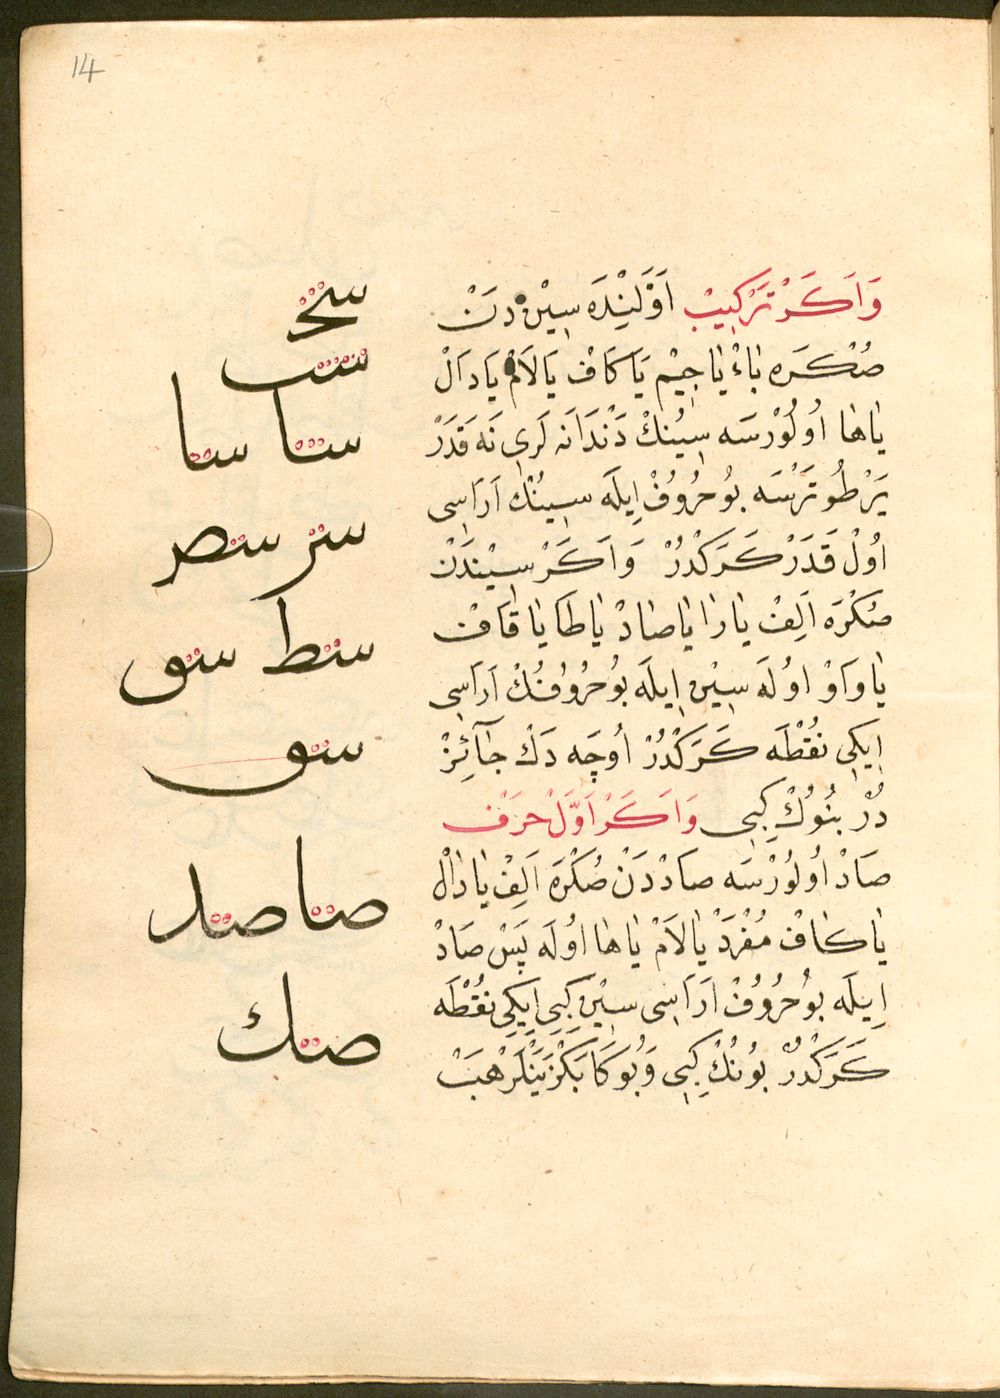 14
وَاَكَرْ تَرْكِيبْ اَوَّلِنْدَه سِيْن دَنْ
صُكْرَه بَاءْ يَا جِيْم يَا كَافْ يَا لَامْ يَا دَالْ
يَا هَا اُولُوْرسَه سِيْنُكْ دَنْدَانَه لَرِى نَه قَدَرْ
يَرْ طُوتَرْسَه بُوحُرُوفْ اِيلَه سِيْنُكْ اَرَاسِى
اُوْل قَدَرْ كَرَكْدُرْ وَاَكَرْ سِيْنْدَنْ
صُكْرَه اَلِفْ يَا رَا يَا صَادْ يَا طَا يَا قَافْ
يَا وَاوْ اوُلَه سِيْن اِيلَه بُوحُرُوفُنُكْ اَرَاسِى
اِيكِى نُقْطَه كَرَكْدُرْ اُوچَه دَكْ جَآئِزْ
دُرْ بُنُوكْ كِبِى وَاَكَرْ اَوَّلْ حَرْفْ
صَادْ اُولُوْرْسَه صَادْدَنْ صُكْرَه اَلِفْ يَا دَالْ
يَا كَافْ مُفْرَدْ يَا لَامْ يَا هَا اوُلَه پَسْ صَادْ
اِيلَه بُوحُرُوفْ اَرَاسِى سِيْن كِبِى اِيكِى نُقْطَه
كَرَكْدُرْ بُونُكْ كِبِى وَبُوكَا بَكْزَيَنْلَرْ هَبْ
سحر
سب
سا سا
سر سصر
سط سق
سو
صا صد
صك